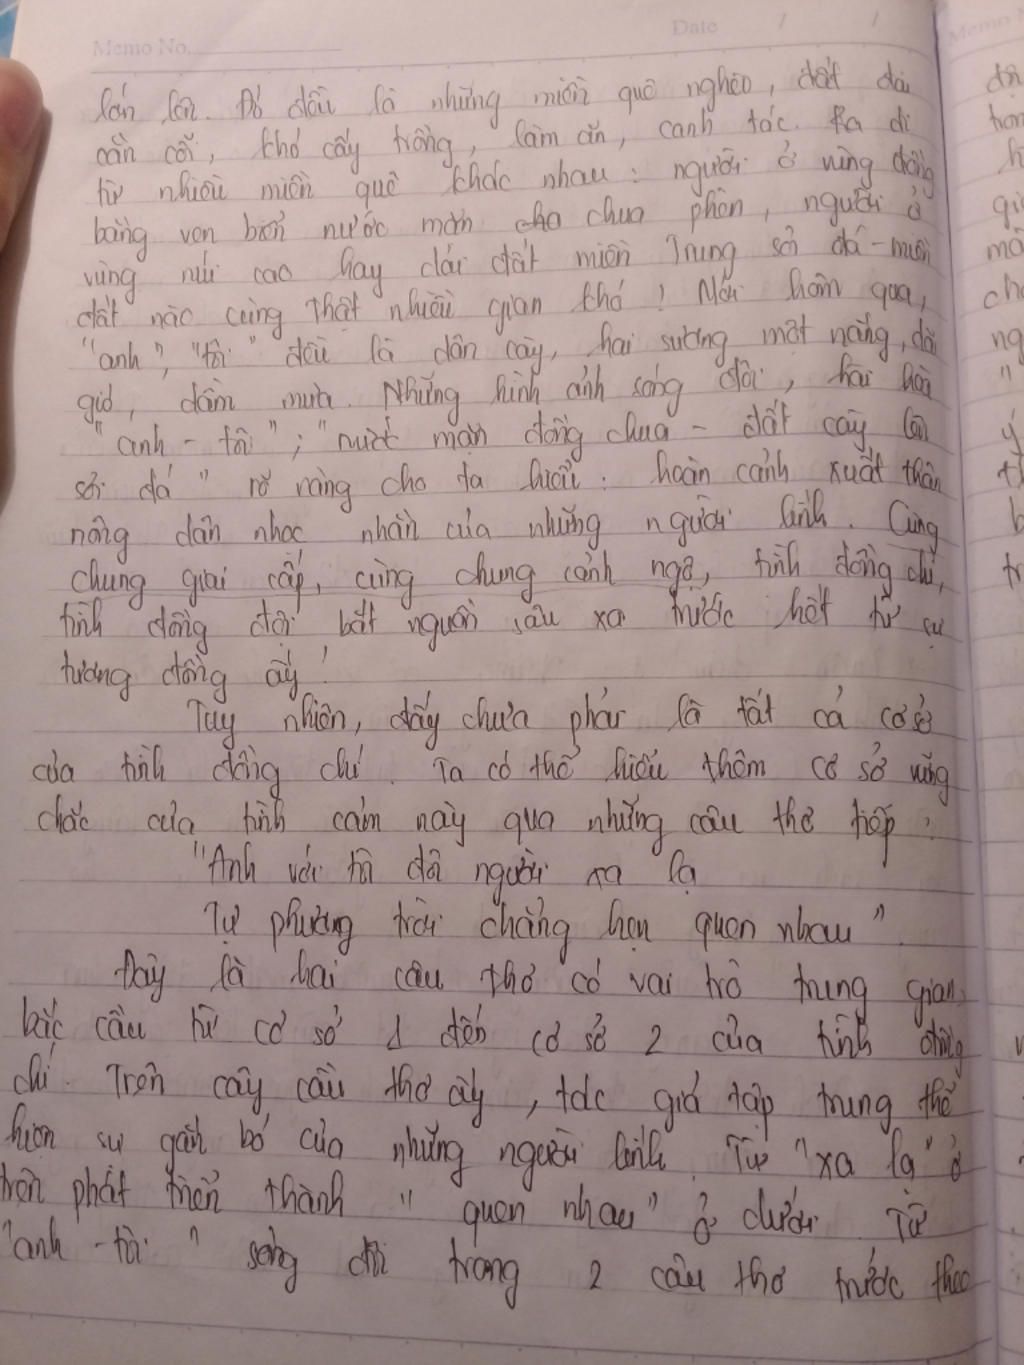 Memo No.
Date / /
lớn lên. Đó đều là những miền quê nghèo, đất đai
cằn cỗi, khó cấy trồng, làm ăn, canh tác. Ra đi
từ nhiều miền quê khác nhau: người ở vùng đồng
bằng ven biển nước mặn chua phèn, người ở
vùng núi cao hay dải đất miền Trung sỏi đá - miền
đất nào cũng thật nhiều gian khó! Mới hôm qua,
"anh", "tôi" đều là dân cày, hai sương một nắng, dãi
gió, dầm mưa. Những hình ảnh sóng đôi, hài hòa
"anh - tôi"; "nước mặn đồng chua - đất cày lên
sỏi đá" rõ ràng cho ta hiểu: hoàn cảnh xuất thân
nông dân nhọc nhằn của những người lính. Cùng
chung giai cấp, cùng chung cảnh ngộ, tình đồng chí,
tình đồng đội bắt nguồn sâu xa trước hết từ sự
tương đồng ấy!
Tuy nhiên, đấy chưa phải là tất cả cơ sở
của tình đồng chí. Ta có thể hiểu thêm cơ sở vững
chắc của tình cảm này qua những câu thơ tiếp:
"Anh với tôi đôi người xa lạ
Tự phương trời chẳng hẹn quen nhau".
Đây là hai câu thơ có vai trò trung gian,
bắc cầu từ cơ sở 1 đến cơ sở 2 của tình đồng
chí. Trên cây cầu thơ ấy, tác giả tập trung thể
hiện sự gắn bó của những người lính. Từ "xa lạ" ở
trên phát triển thành "quen nhau" ở dưới. Từ
"anh - tôi" sóng đôi trong 2 câu thơ trước theo